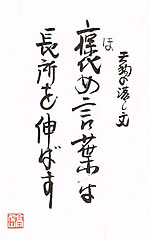 天狗の落し文
褒め言葉は
ほ
長所を伸ばす